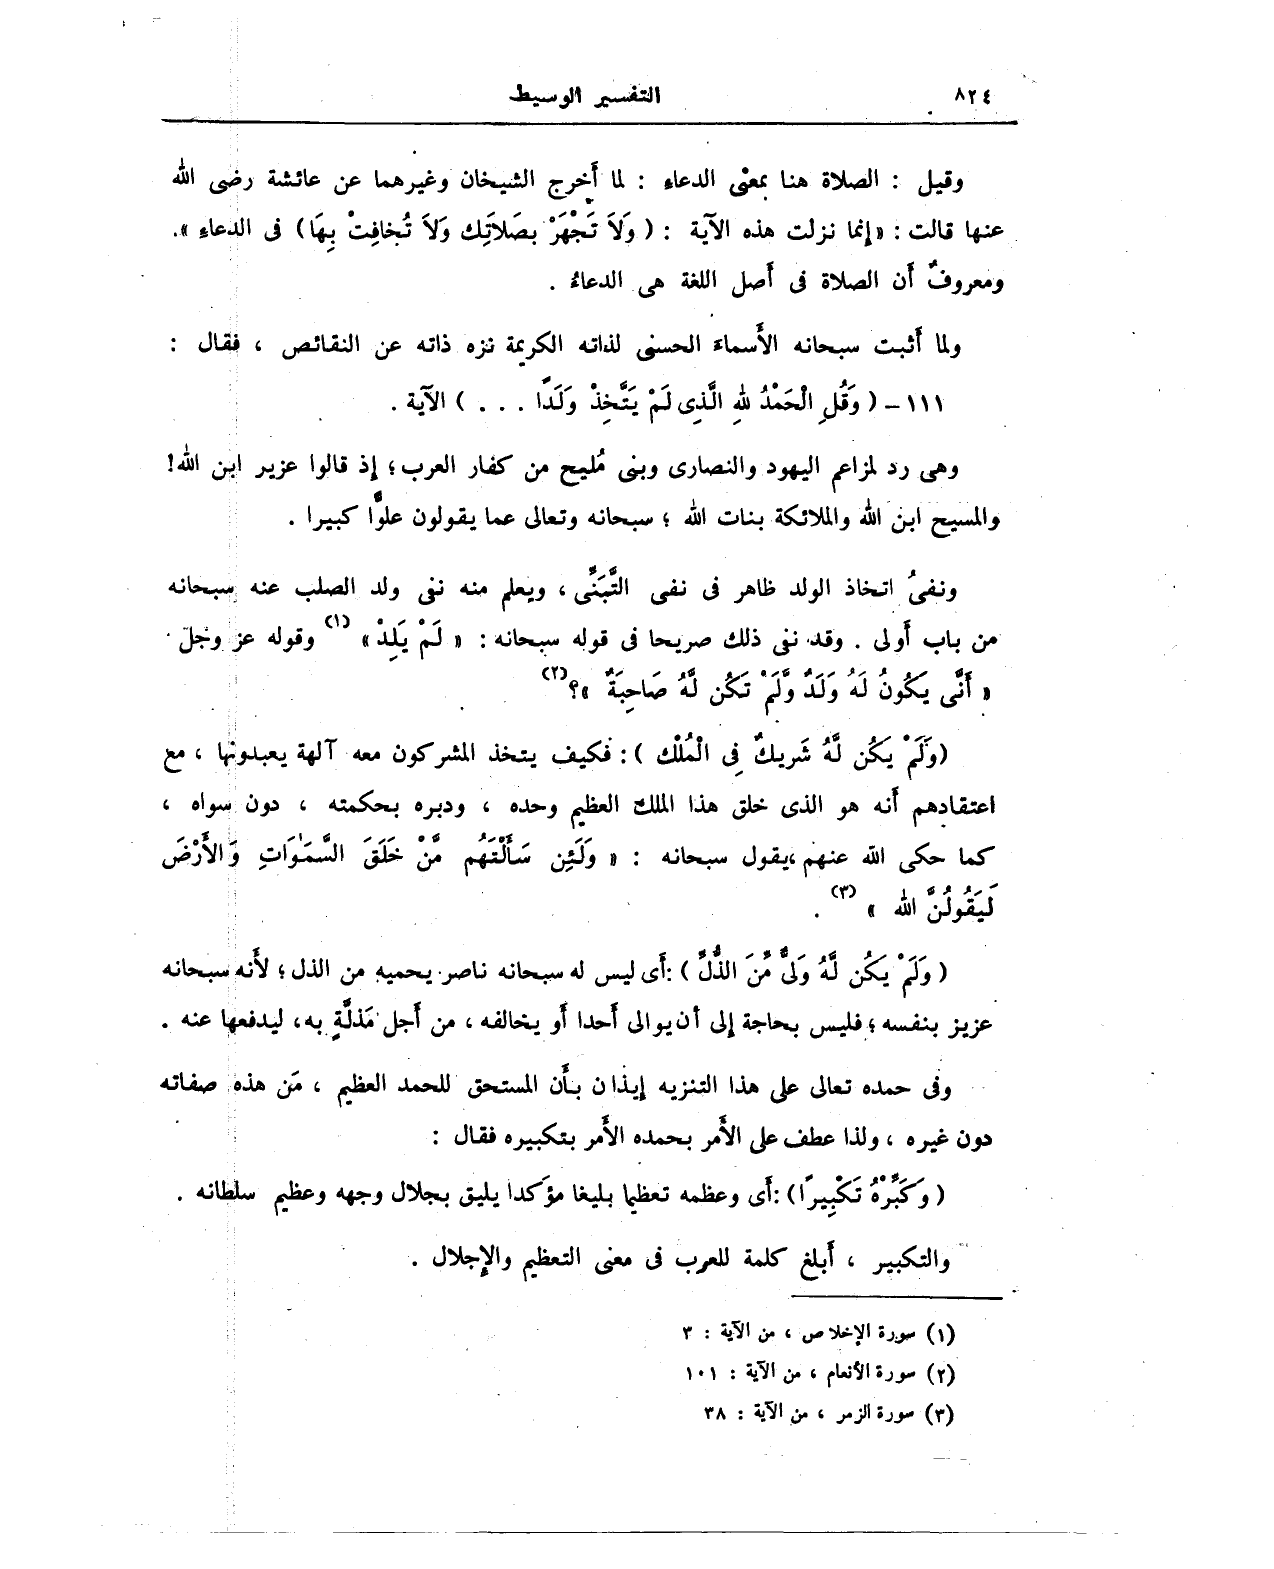 ٨٢٤ التفسير الوسيط
وقيل : الصلاة هنا بمعنى الدعاء : لما أخرج الشيخان وغيرهما عن عائشة رضى الله
عنها قالت : «إنما نزلت هذه الآية : ( وَلاَ تَجْهَرْ بِصَلاَتِكَ وَلاَ تُخافِتْ بِهَا) فى الدعاء ».
ومعروفٌ أن الصلاة فى أصل اللغة هى الدعاءُ .
ولما أثبت سبحانه الأسماءَ الحسنى لذاته الكريمة نزه ذاته عن النقائص ، فقال :
١١١ – ( وَقُلِ الْحَمْدُ للهِ الَّذِى لَمْ يَتَّخِذْ وَلَدًا . . . ) الآية .
وهى رد لمزاعم اليهود والنصارى وبنى مُليح من كفار العرب ؛ إذ قالوا عزير ابن الله!
والمسيح ابن الله والملائكة بنات الله ؛ سبحانه وتعالى عما يقولون علوًّا كبيرا .
ونفىُ اتخاذ الولد ظاهر فى نفى التَّبَنِّى ، ويعلم منه نفى ولد الصلب عنه سبحانه
من باب أولى . وقد نفى ذلك صريحا فى قوله سبحانه : « لَمْ يَلِدْ » (١) وقوله عز وجلّ
« أَنَّى يَكُونُ لَهُ وَلَدٌ وَّلَمْ تَكُن لَّهُ صَاحِبَةٌ »؟(٢)
(وَلَمْ يَكُن لَّهُ شَرِيكٌ فِى الْمُلْكِ ) : فكيف يتخذ المشركون معه آلهة يعبدونها ، مع
اعتقادهم أنه هو الذى خلق هذا الملك العظيم وحده ، ودبره بحكمته ، دون سواه ،
كما حكى الله عنهم ،يقول سبحانه : « وَلَئِن سَأَلْتَهُم مَّنْ خَلَقَ السَّمَوَاتِ وَالأَرْضَ
لَيَقُولُنَّ الله » (٣) .
( وَلَمْ يَكُن لَّهُ وَلِىٌّ مِّنَ الذُّلِّ ) :أى ليس له سبحانه ناصر يحميه من الذل ؛ لأنه سبحانه
عزيز بنفسه ؛ فليس بحاجة إلى أن يوالى أحدا أو يخالفه ، من أجل مَذلَّةٍ به ، ليدفعها عنه .
وفى حمده تعالى على هذا التنزيه إيذان بأن المستحق للحمد العظيم ، مَن هذه صفاته
دون غيره ، ولذا عطف على الأمر بحمده الأمر بتكبيره فقال :
( وَكَبِّرْهُ تَكْبِيرًا) :أى وعظمه تعظيما بليغا مؤكدا يليق بجلال وجهه وعظيم سلطانه .
والتكبير ، أبلغ كلمة للعرب فى معنى التعظيم والإجلال .
(١) سورة الإخلاص ، من الآية : ٣
(٢) سورة الأنعام ، من الآية : ١٠١
(٣) سورة الزمر ، من الآية : ٣٨